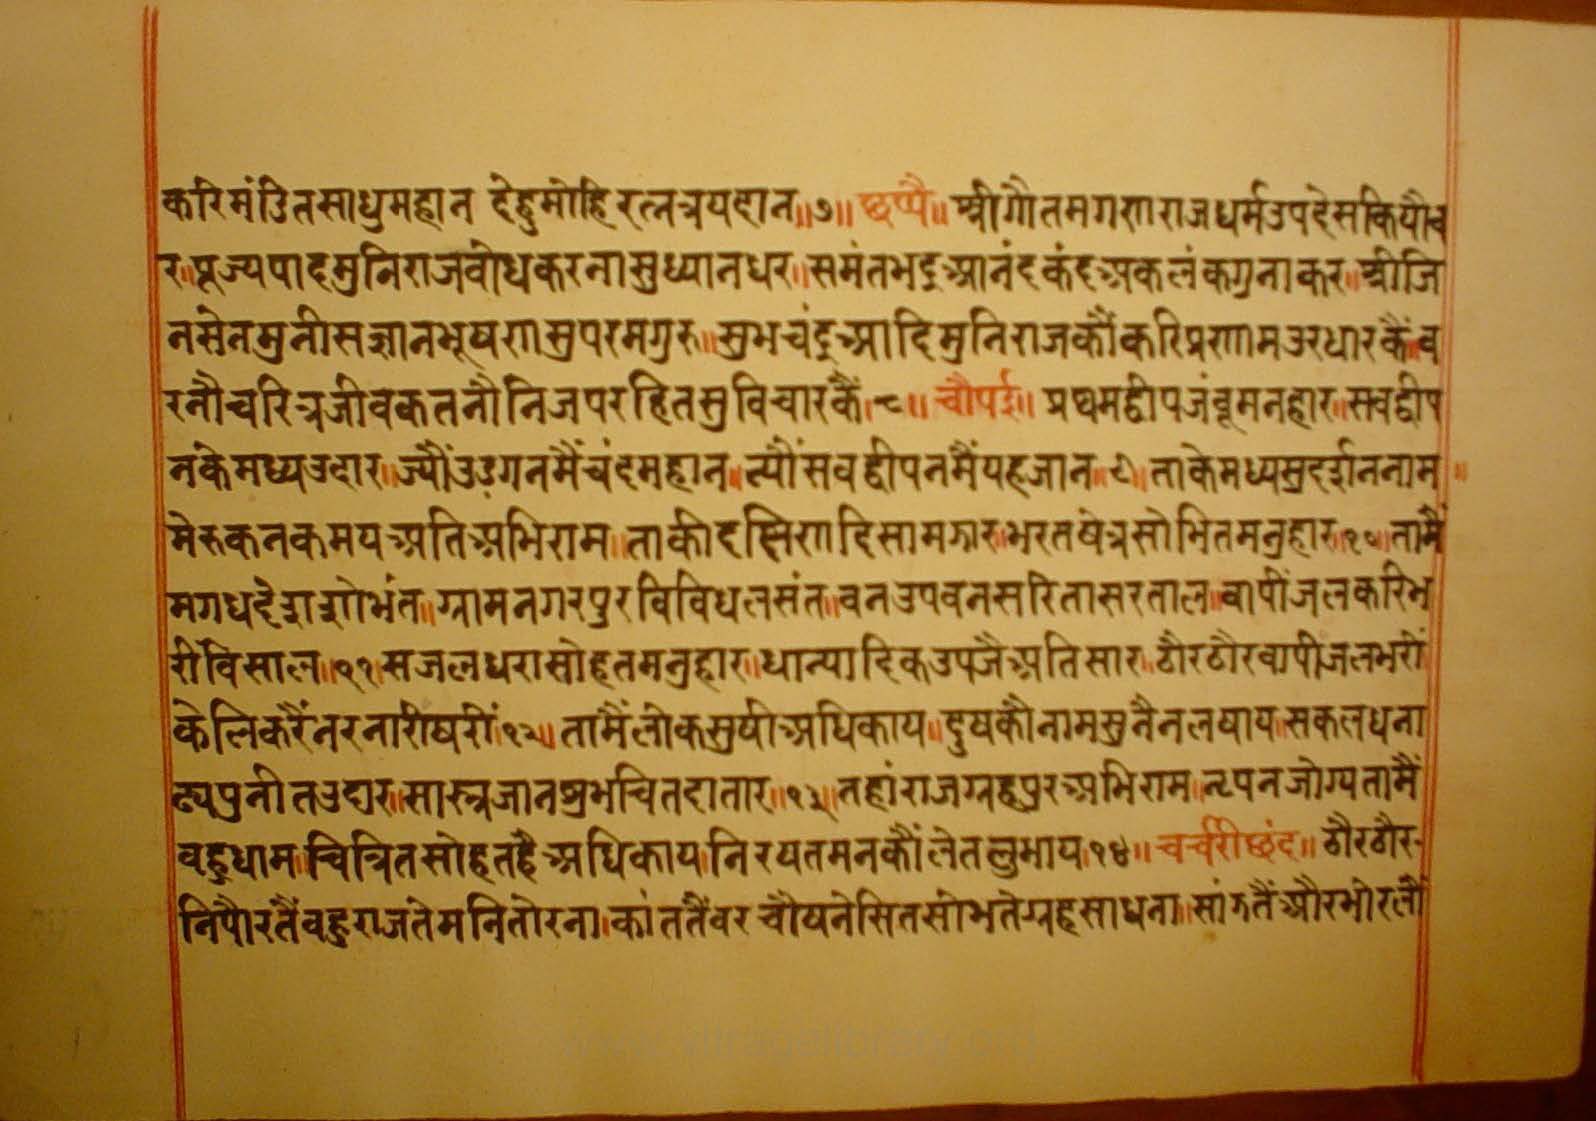 करिमंडितसाधुमहान देहुमोहिरत्नत्रयदान॥७॥ छप्पै॥ श्रीगौतमगणराजधर्मउपदेसकियौव
र॥पूज्यपादमुनिराजबोधकरनासुध्यानधर॥समंतभद्रआनंदकंदअकलंकगुनाकर॥श्रीजि
नसेनमुनीसज्ञानभूषणसुपरमगुरु॥सुभचंद्रआदिमुनिराजकौंकरिप्रणामउरधारकैं॥व
रनौचरित्रजीवकतनौनिजपरहितसुविचारकैं।८॥ चौपई॥ प्रथमद्वीपजंबूमनहार॥सबद्वीप
नकेमध्यउदार॥ज्यौंउडगनमैंचंदमहान॥त्यौंसबद्वीपनमैंयहजान॥९॥ताकेमध्यसुदर्शननाम॥
मेरुकनकमयअतिअभिराम॥ताकीदक्षिणदिसामझारु॥भरतषेत्रसोभितमनुहारु॥१०॥तामैं
मगधदेशशोभंत॥ग्रामनगरपुरविविधलसंत॥वनउपवनसरितासरताल॥वापींजलकरिभ
रींविसाल॥११॥सजलधरासोहतमनुहारु॥धान्यादिकउपजैअतिसार॥ठौरठौरवापीजलभरीं
केलिकरैंनरनारीषरीं॥१२॥तामैंलोकसुषीअधिकाय॥दुषकौनामसुनैनलषाय॥सकलधना
ढ्यपुनीतउदारु॥सास्त्रजानशुभचितदातार॥१३॥तहांराजग्रहपुरअभिराम॥नृपनजोग्यतामैं
बहुधाम॥चित्रितसोहतहैअधिकाय॥निरषतमनकौंलेतलुभाय॥१४॥ चर्चरीछंद॥ ठौरठौर
निपौरतैंबहुराजतेमनितोरना॥कांततैंवर चौषनेसितसोभतेग्रहसाधना॥सांझतैंऔरभोरलौं